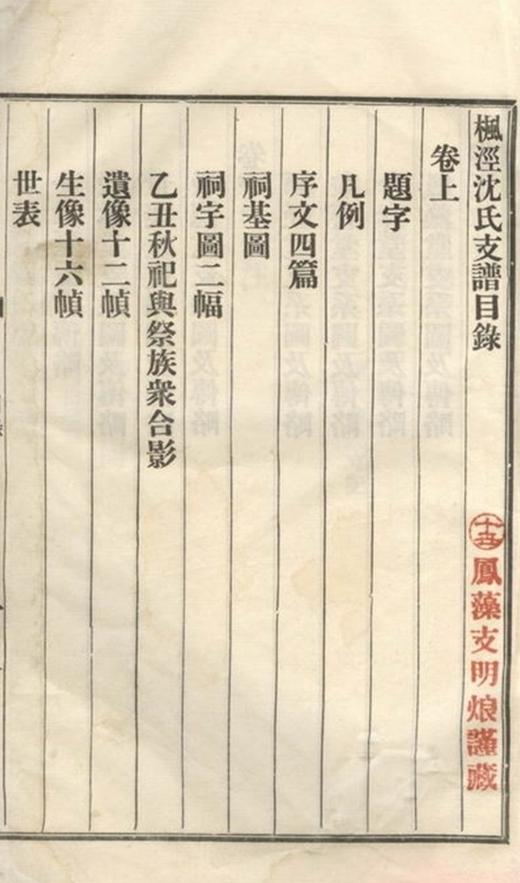 楓涇沈氏支譜目錄
鳳藻支明烺謹藏
卷上
題字
凡例
序文四篇
祠基圖
祠宇圖二幅
乙丑秋祀與祭族衆合影
遺像十二幀
生像十六幀
世表